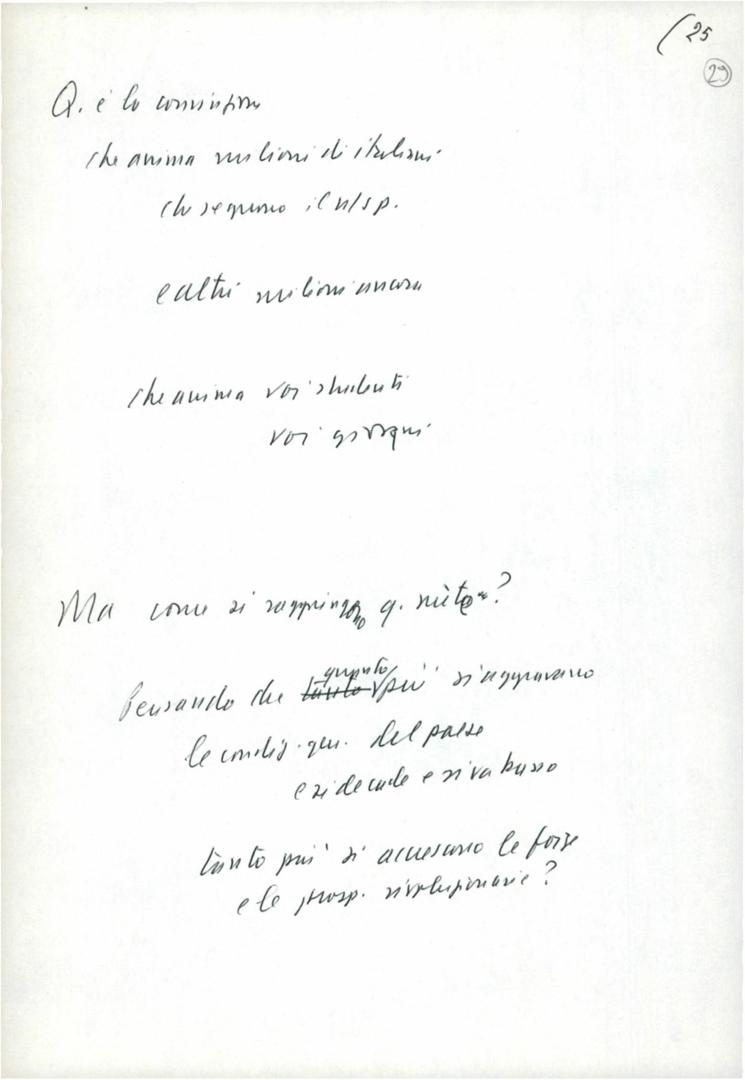 (25
29
Q. è la convinzione
che anima milioni di italiani
che seguono il n/s p.
e altri milioni ancora
che anima voi studenti
voi giovani
Ma come si raggiungono q. mète?
Pensando che tanto quanto più si aggravano
le condiz. gen. del paese
e si decade e si va basso
tanto più si accrescano le forze
e le prosp. rivoluzionarie?